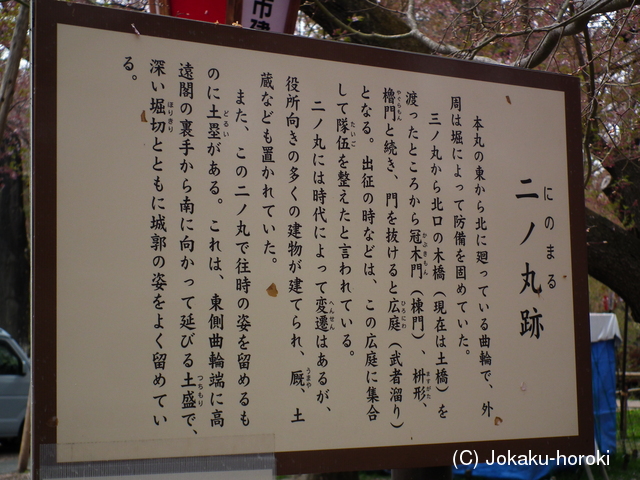 市建
二ノ丸跡
にのまる
本丸の東から北に廻っている曲輪で、外
周は堀によって防備を固めていた。
三ノ丸から北口の木橋(現在は土橋)を
渡ったところから冠木門(棟門)、枡形、
櫓門と続き、門を抜けると広庭(武者溜り)
となる。出征の時などは、この広庭に集合
して隊伍を整えたと言われている。
二ノ丸には時代によって変遷はあるが、
役所向きの多くの建物が建てられ、厩、土
蔵なども置かれていた。
また、この二ノ丸で往時の姿を留めるも
のに土塁がある。これは、東側曲輪端に高
遠閣の裏手から南に向かって延びる土盛で、
深い堀切とともに城郭の姿をよく留めてい
る。
かぶきもん
ますがた
やぐらもん
ひろにわ
たいご
へんせん
うまや
どるい
つちもり
ほりきり
(C) Jokaku-horoki